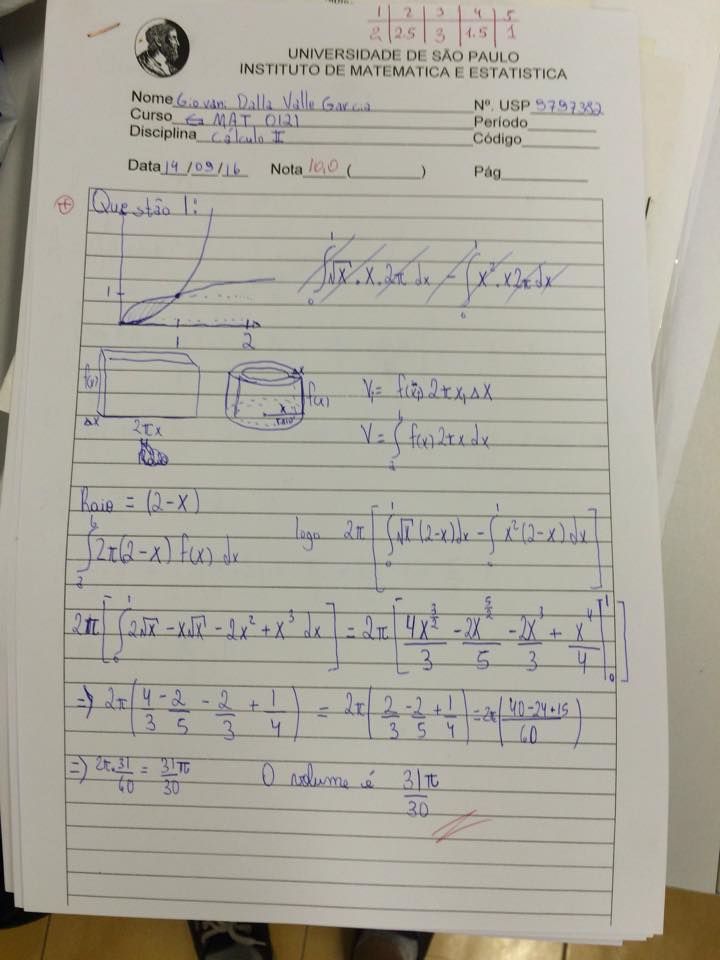 1 | 2 | 3 | 4 | 5
2 | 2.5 | 3 | 1.5 | 1
UNIVERSIDADE DE SÃO PAULO
INSTITUTO DE MATEMÁTICA E ESTATÍSTICA
Nome Giovani Dalla Valle Garcia Nº. USP 9797382
Curso MAT 0121 Período
Disciplina Cálculo II Código
Data 14/09/16 Nota 10,0 ( ) Pág
Questão 1:
∫₀¹ √x . x . 2π dx - ∫₀¹ x² . x 2π dx
1
1 2
f(x) Δx f(x)
Δx x raio
2πx
V₁ = f(x₁) 2πx₁ΔX
V = ∫ f(x) 2πx dx
Raio = (2-x)
∫ 2π(2-x) f(x) dx logo 2π [∫₀¹ √x (2-x)dx - ∫₀¹ x²(2-x) dx]
2π [∫₀¹ 2√x - x√x - 2x² + x³ dx] = 2π [4x^(3/2)/3 - 2x^(5/2)/5 - 2x³/3 + x⁴/4 |₀¹]
=> 2π(4/3 - 2/5 - 2/3 + 1/4) = 2π(2/3 - 2/5 + 1/4) = 2π((40-24+15)/60)
=> 2π.31/60 = 31π/30 O volume é 31π/30